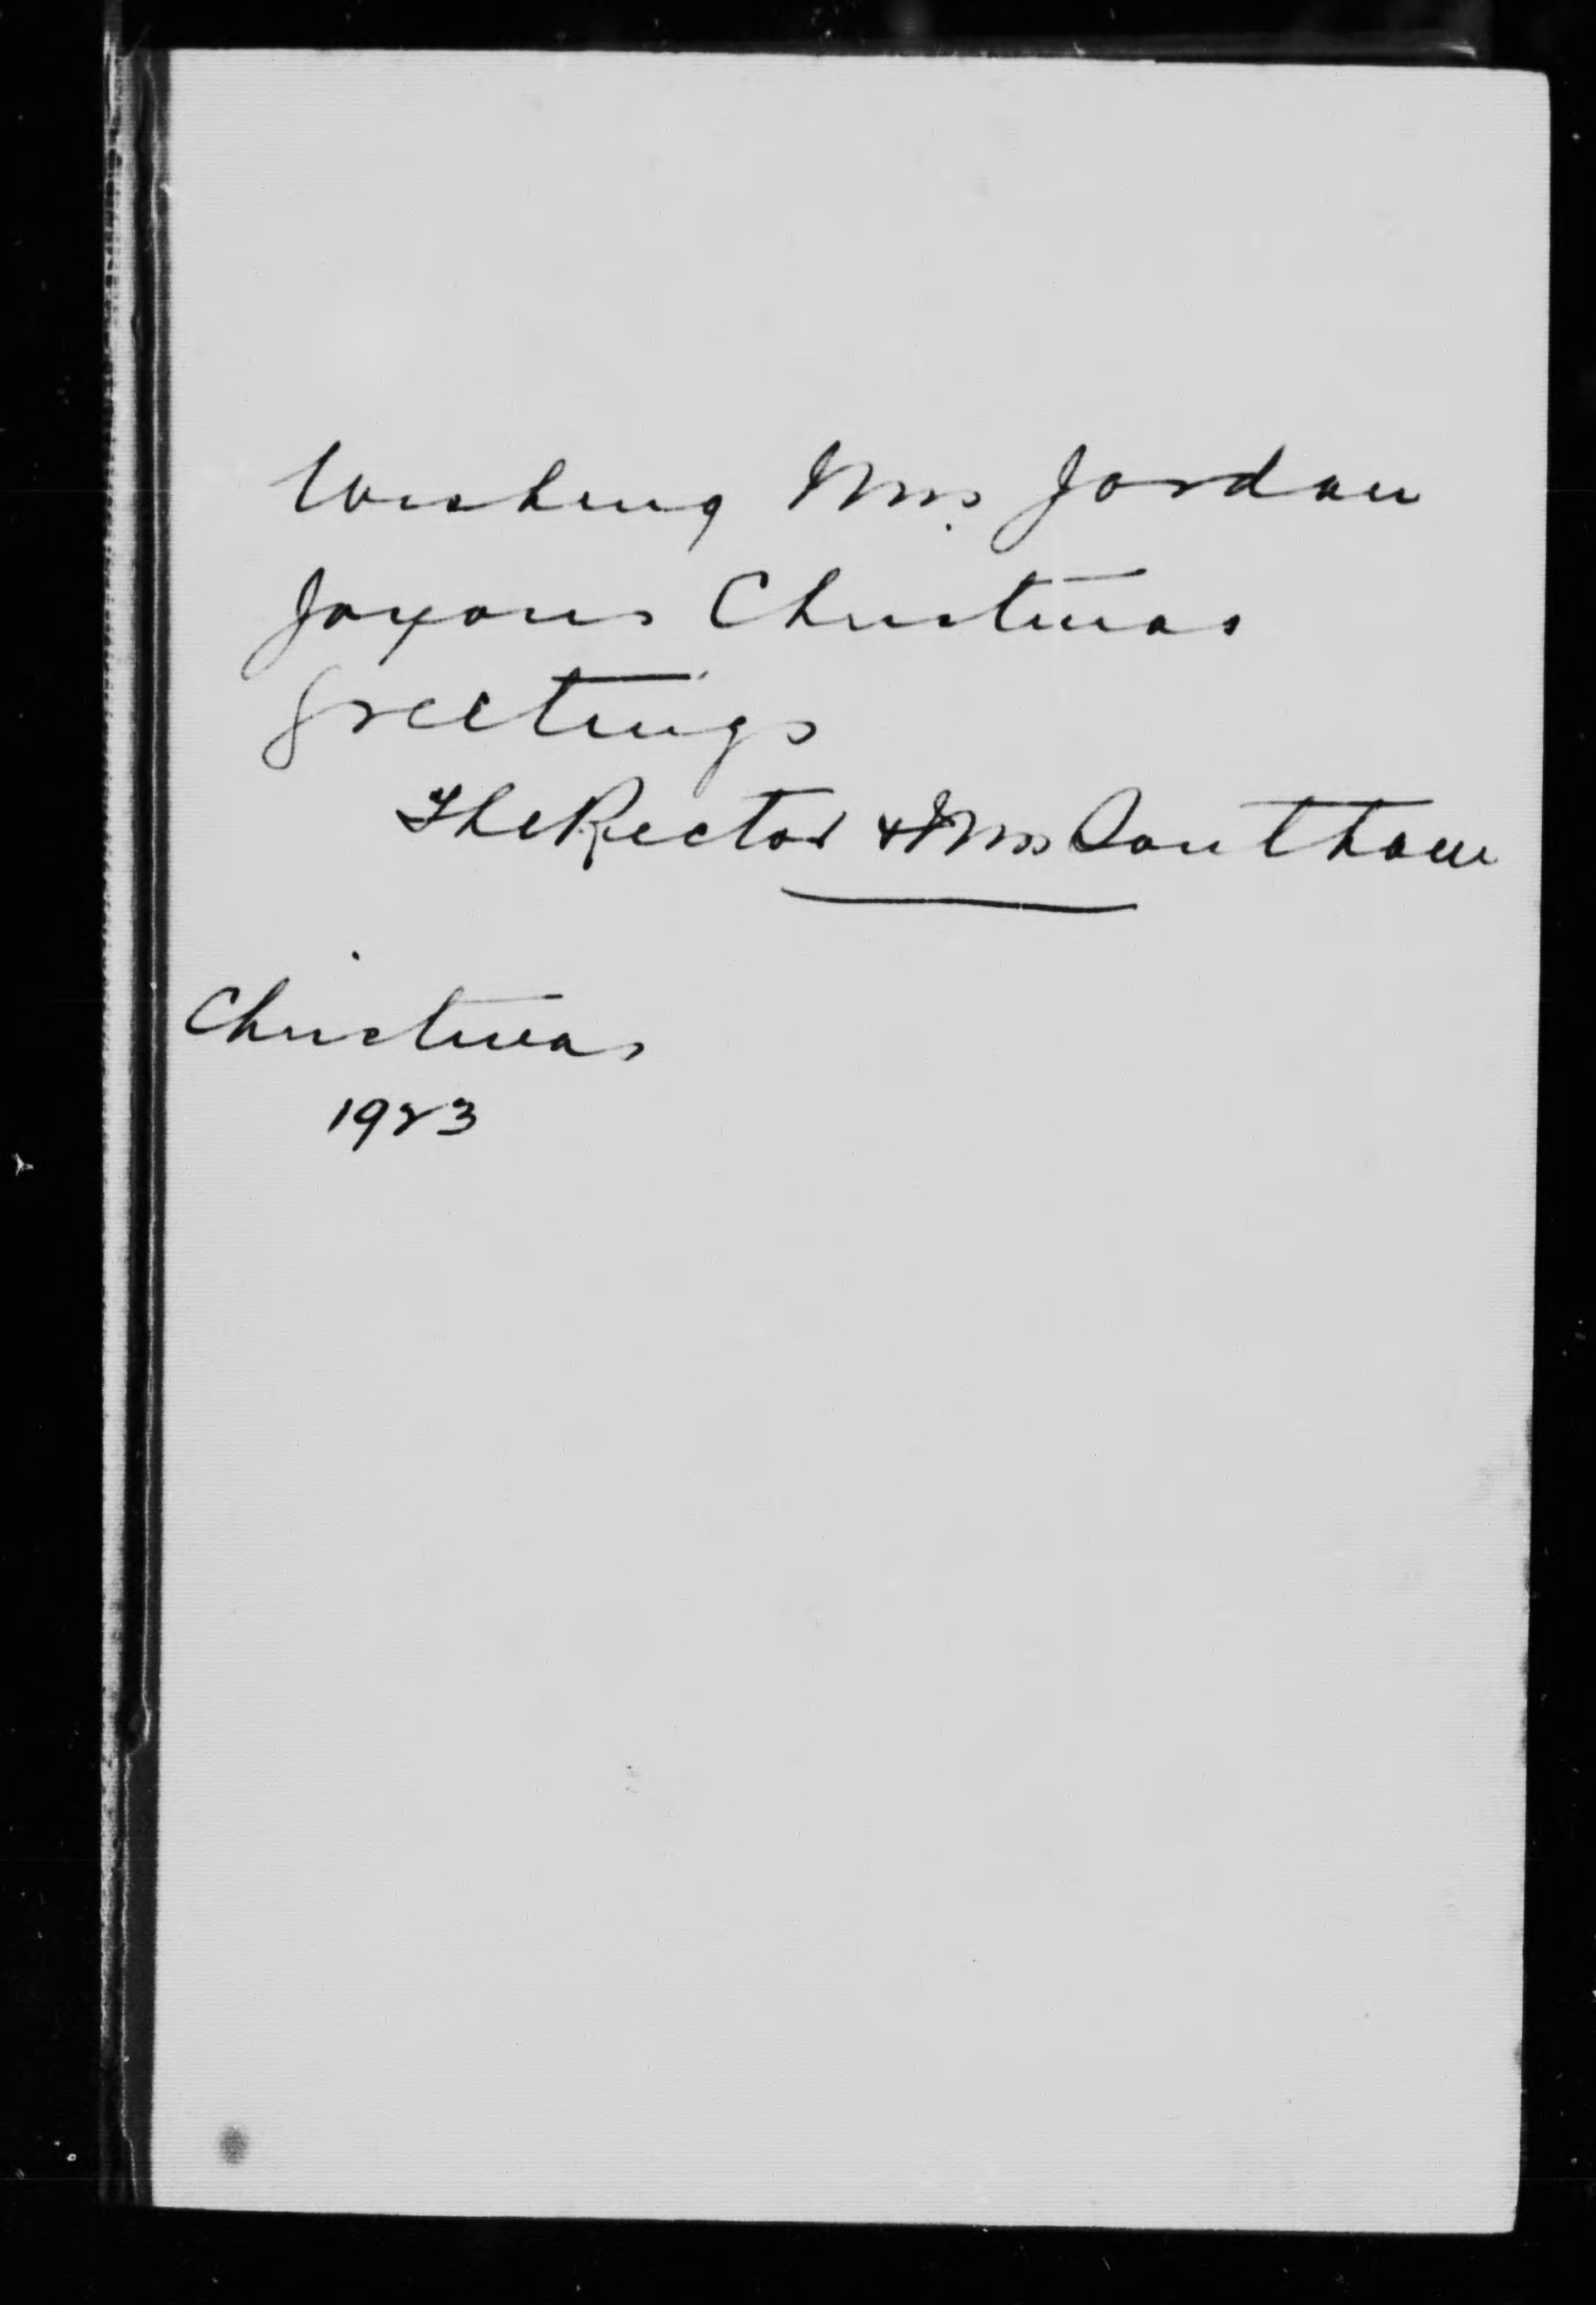 Wishing Mrs. Jordan
Joyous Christmas
Greetings
The Rector & Mrs Southam
Christmas
1923